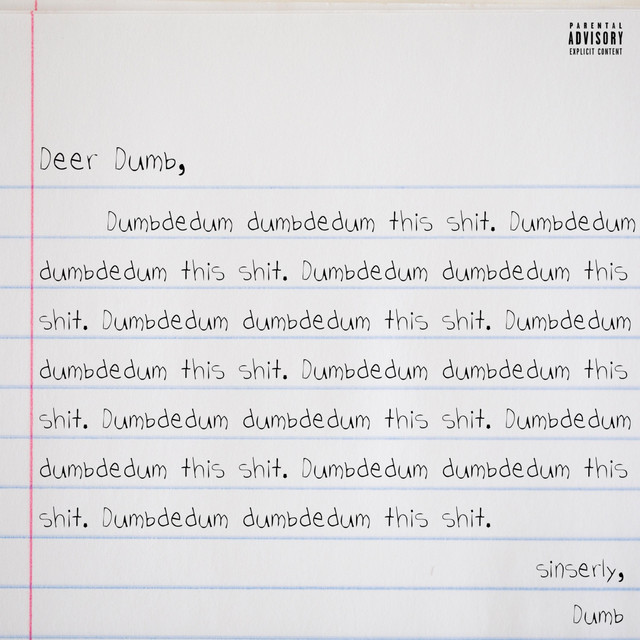 PARENTAL
ADVISORY
EXPLICIT CONTENT
Deer Dumb,
Dumbdedum dumbdedum this shit. Dumbdedum
dumbdedum this shit. Dumbdedum dumbdedum this
shit. Dumbdedum dumbdedum this shit. Dumbdedum
dumbdedum this shit. Dumbdedum dumbdedum this
shit. Dumbdedum dumbdedum this shit. Dumbdedum
dumbdedum this shit. Dumbdedum dumbdedum this
shit. Dumbdedum dumbdedum this shit.
sinserly,
Dumb